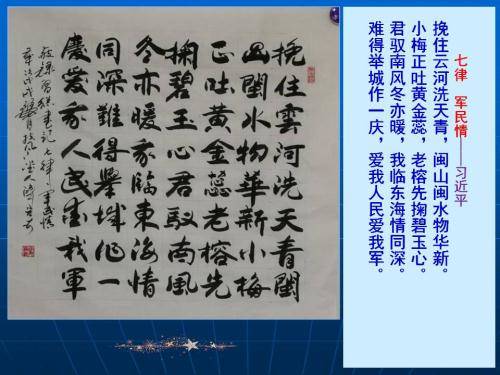 七律 军民情——习近平
挽住云河洗天青，闽山闽水物华新。
小梅正吐黄金蕊，老榕先掬碧玉心。
君驭南风冬亦暖，我临东海情同深。
难得举城作一庆，爱我人民爱我军。
挽住雲河洗天青閩
山閩水物華新小梅
正吐黄金蕊老榕先
掬碧玉心君馭南風
冬亦暖我臨東海情
同深難得舉城作一
慶愛我人民愛我軍
書記七律軍民情